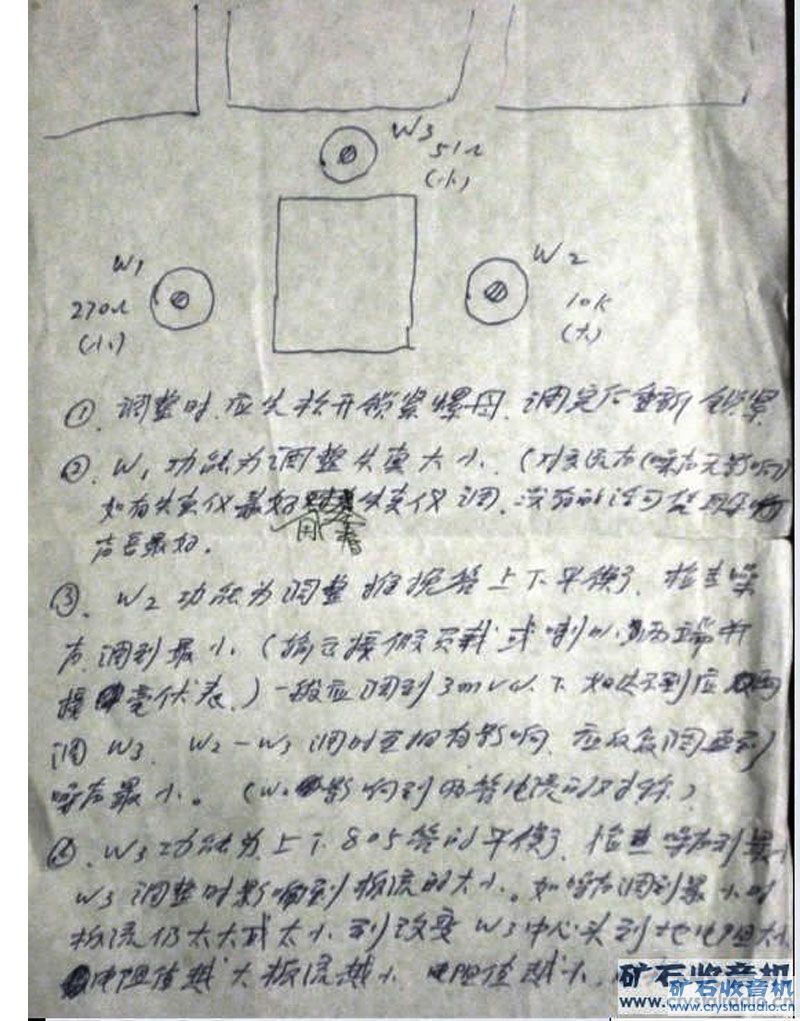 W3
51Ω
(小)
W1
W2
270Ω
10K
(小)
(大)
①、调整时,应先松开锁紧螺母,调完后重新锁紧
②、W1功能为调整失真大小、(对交流声(噪声无影响)
如有失真仪最好用失真仪调,没有的话可
声音最好。
③、W2功能为调整推挽管上下平衡,检查噪
声调到最小(输出接假负载或喇叭,两端并
接毫伏表)一般应调到3mV以下如达不到应
调W3、W2-W3调时互相有影响,应反复调直到
噪声最小。(W2影响到两管电流的对称)
④、W3功能为上下805管的平衡,检查噪声到最小
W3调整时影响到板流的大小。如噪声调到最小时
板流仍太大或太小,则改变W3中心头到地电阻大小
电阻值越大板流越小,电阻值越小,
矿石收音机
www.crystalradio.cn
矿石收音机
www.crystalradio.cn